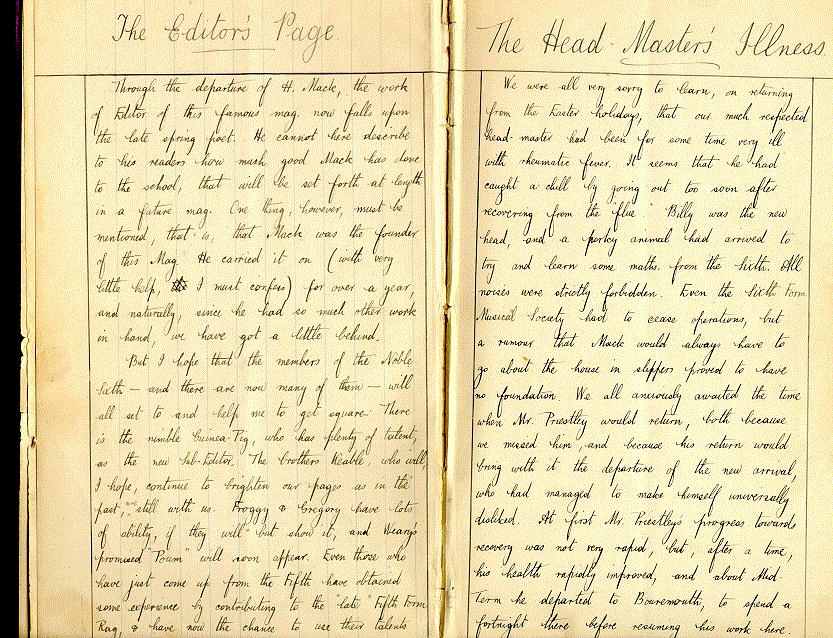 The Editor's Page.
Through the departure of H. Mack, the work
of Editor of this famous mag. now falls upon
the late spring poet. He cannot here describe
to his readers how much good Mack has done
to the school, that will be set forth at length
in a future mag. One thing, however, must be
mentioned, that is, that Mack was the founder
of this Mag. He carried it on (with very
little help, I must confess) for over a year,
and naturally, since he had so much other work
in hand, we have got a little behind.
But I hope that the members of the Noble
Sixth – and there are now many of them – will
all set to and help me to get square. There
is the nimble Guinea-Pig, who has plenty of talent,
as the new Sub-Editor. The brothers Keable, who will,
I hope, continue to brighten our pages as in the
past, are still with us. Froggy & Gregory have lots
of ability, if they will but show it, and Weary's
promised "Poum" will soon appear. Even those who
have just come up from the Fifth have obtained
some experience by contributing to the "late" Fifth Form
Rag, & have now the chance to use their talents
The Head-Master's Illness.
We were all very sorry to learn, on returning
from the Easter holidays, that our much respected
head-master had been for some time very ill
with rheumatic fever. It seems that he had
caught a chill by going out too soon after
recovering from the "flue". Billy was the new
head, and a porky animal had arrived to
try and learn some maths. from the Sixth. All
noises were strictly forbidden. Even the Sixth Form
Musical Society had to cease operations, but
a rumour that Mack would always have to
go about the house in slippers proved to have
no foundation. We all anxiously awaited the time
when Mr. Priestley would return, both because
we missed him, and because his return would
bring with it the departure of the new arrival,
who had managed to make himself universally
disliked. At first Mr. Priestley's progress towards
recovery was not very rapid, but, after a time,
his health rapidly improved, and about Mid-
Term he departed to Bouremouth, to spend a
fortnight there before resuming his work here.